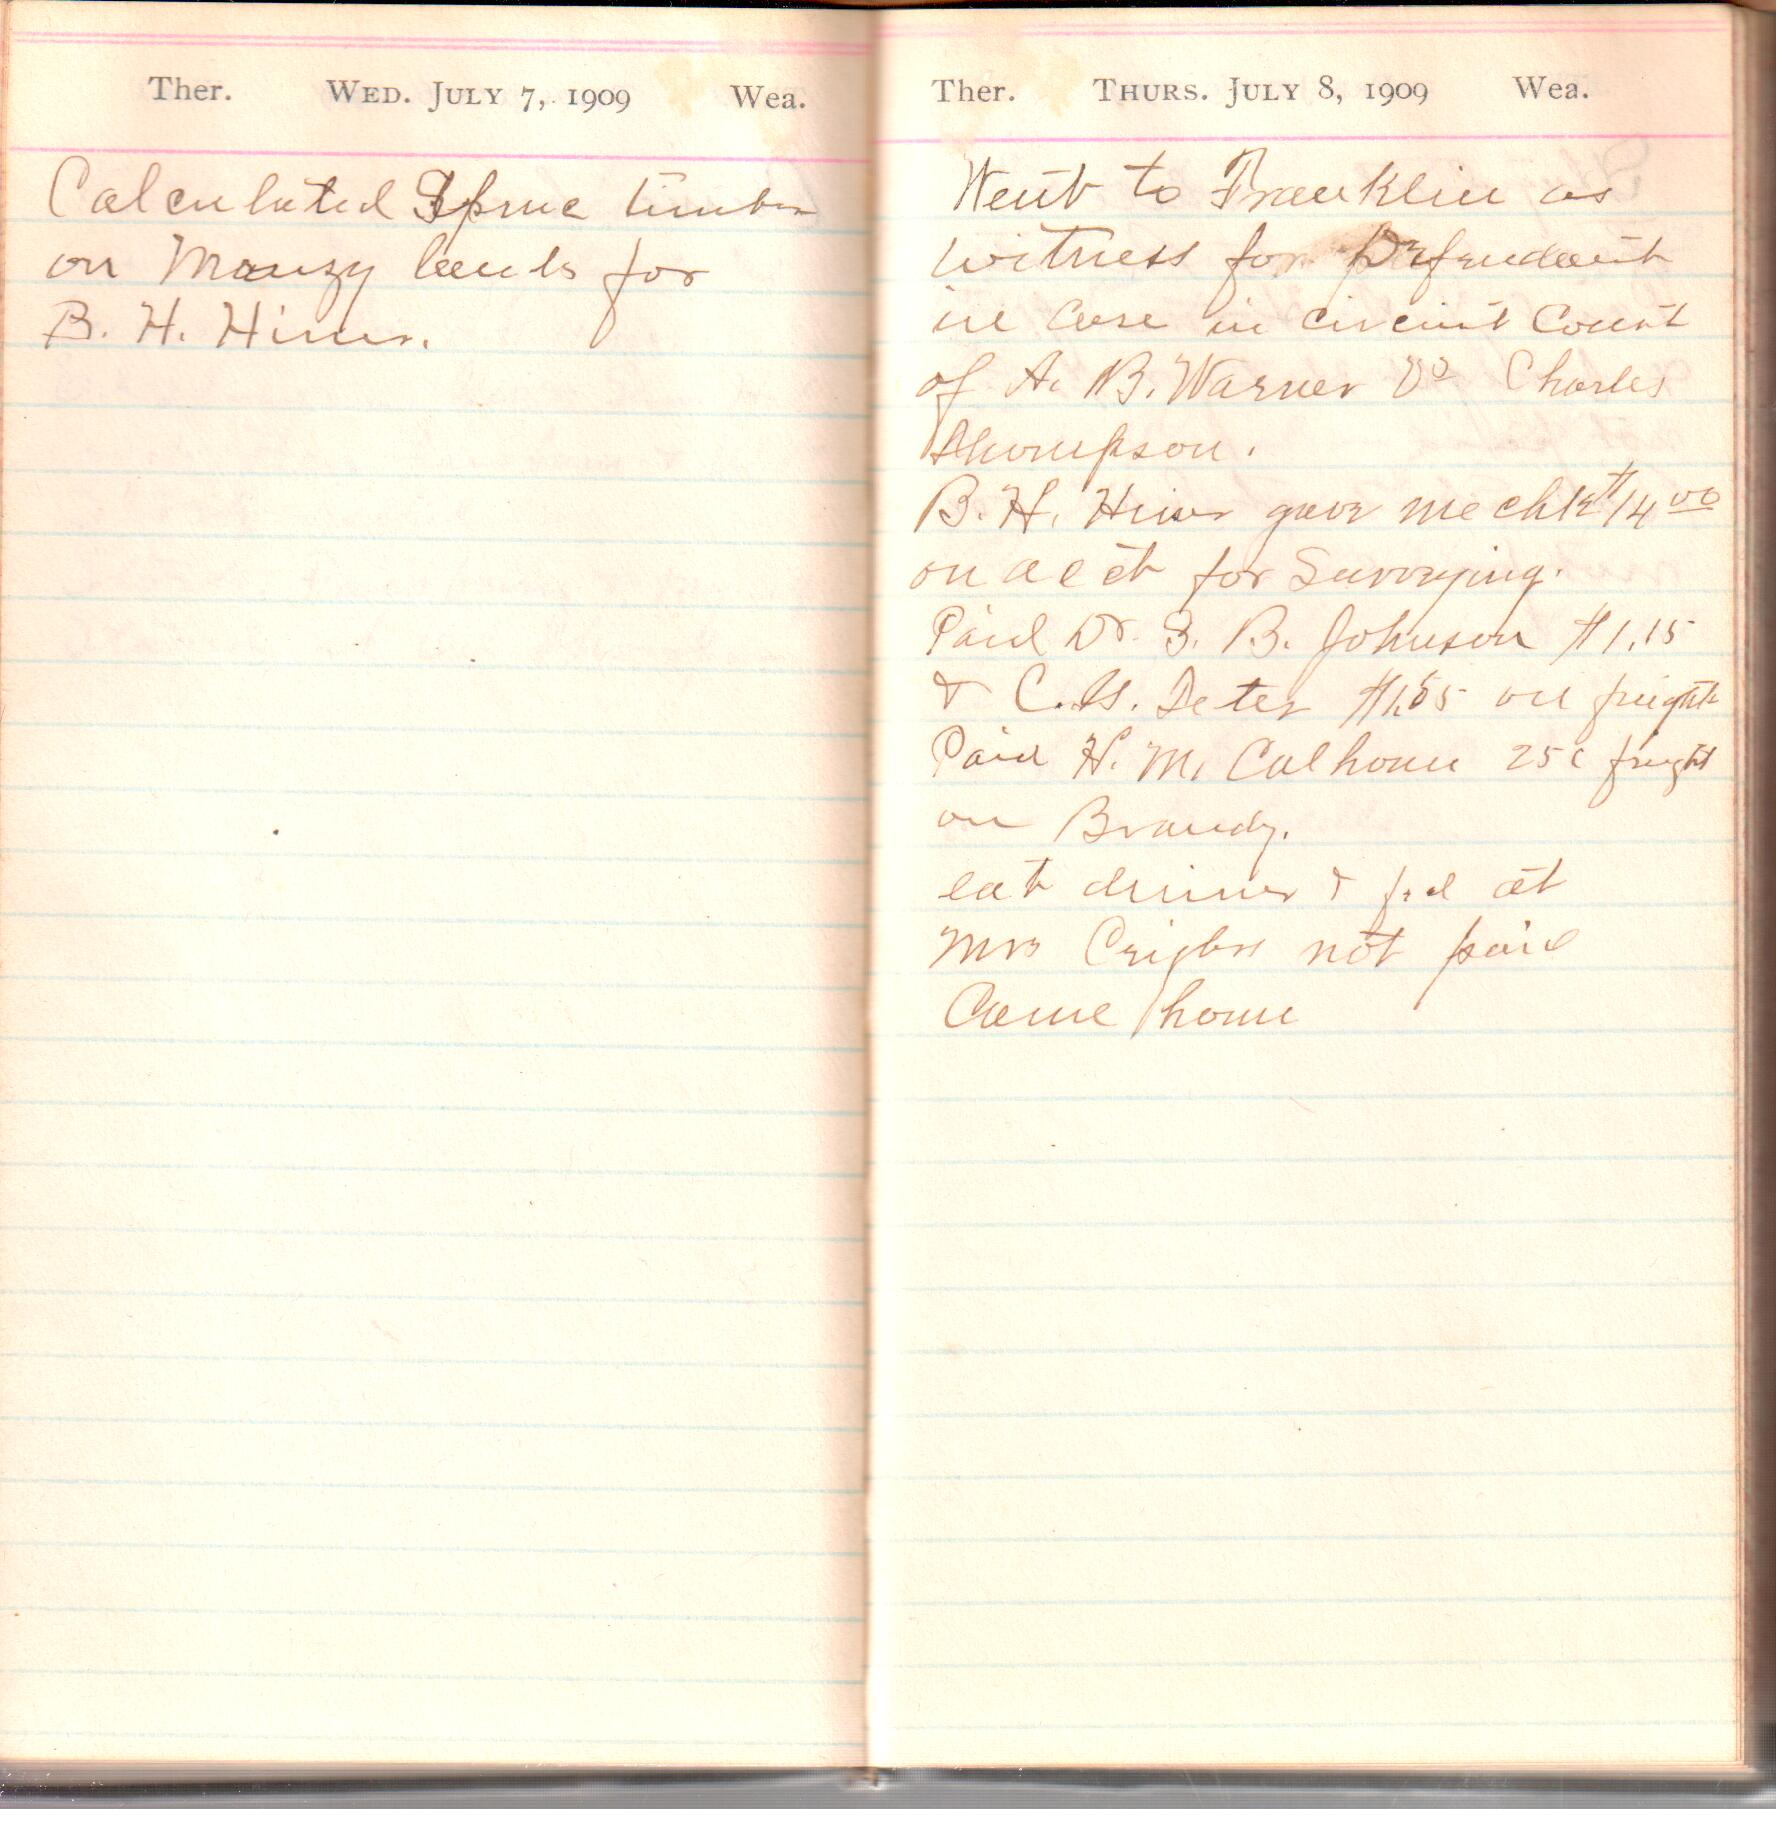 Ther. WED. JULY 7, 1909 Wea.
Calculated Spruce timber
on Mauzy lands for
B. H. Hiner.
Ther. THURS. JULY 8, 1909 Wea.
Went to Franklin as
witness for Defendant
in case in circuit Court
of A. B. Warner vs Charles
Thompson.
B. H. Hiner gave me chk $14 00
on acct for Surveying.
Paid Dr. S. B. Johnson $1.15
& C. H. Teter on freight
Paid H. M. Calhoun 25c freight
on Brandy.
eat dinner & fed at
Mrs not paid
Came home